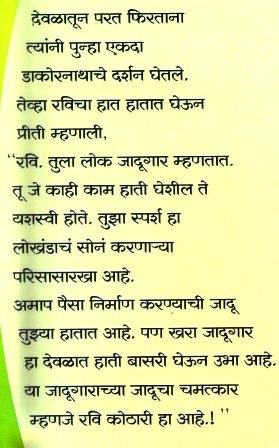 देवळातून परत फिरताना
त्यांनी पुन्हा एकदा
डाकोरनाथाचे दर्शन घेतले.
तेव्हा रविचा हात हातात घेऊन
प्रीती म्हणाली,
"रवि. तुला लोक जादूगार म्हणतात.
तू जे काही काम हाती घेशील ते
यशस्वी होते. तुझा स्पर्श हा
लोखंडाचं सोनं करणाऱ्या
परिसासारखा आहे.
अमाप पैसा निर्माण करण्याची जादू
तुझ्या हातात आहे. पण खरा जादूगार
हा देवळात हाती बासरी घेऊन उभा आहे.
या जादूगाराच्या जादूचा चमत्कार
म्हणजे रवि कोठारी हा आहे.! "